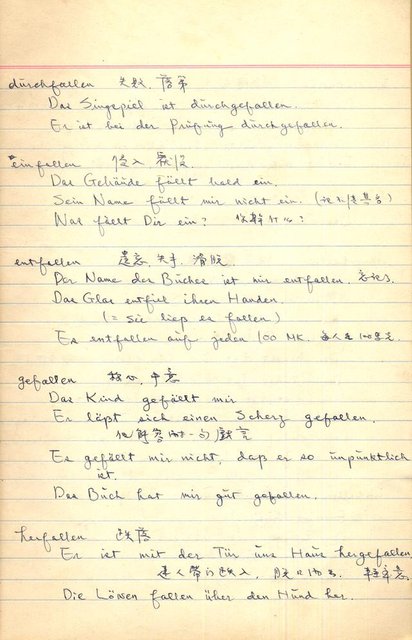 durchfallen 失敗, 落第
Das Singspiel ist durchgefallen.
Er ist bei der Prüfung durchgefallen.
einfallen 侵入
Das Gebäude fällt bald ein.
Sein Name fällt mir nicht ein.
Was fällt Dir ein? 你幹什么?
entfallen 遺忘, 失手, 滑脫
Der Name des Buches ist mir entfallen. 忘記了
Das Glas entfiel ihren Handen.
(= sie liess es fallen)
Es entfallen auf jeden 100 MK.
gefallen 稱心, 中意
Das Kind gefällt mir
Er lässt sich einen Scherz gefallen.
他解答一句戲言
Es gefällt mir nicht, dass er so unpünktlich
ist.
Das Buch hat mir gut gefallen.
herfallen 跌落
Er ist mit der Tür ins Haus hergefallen
Die Löwen fallen über den Hund her.